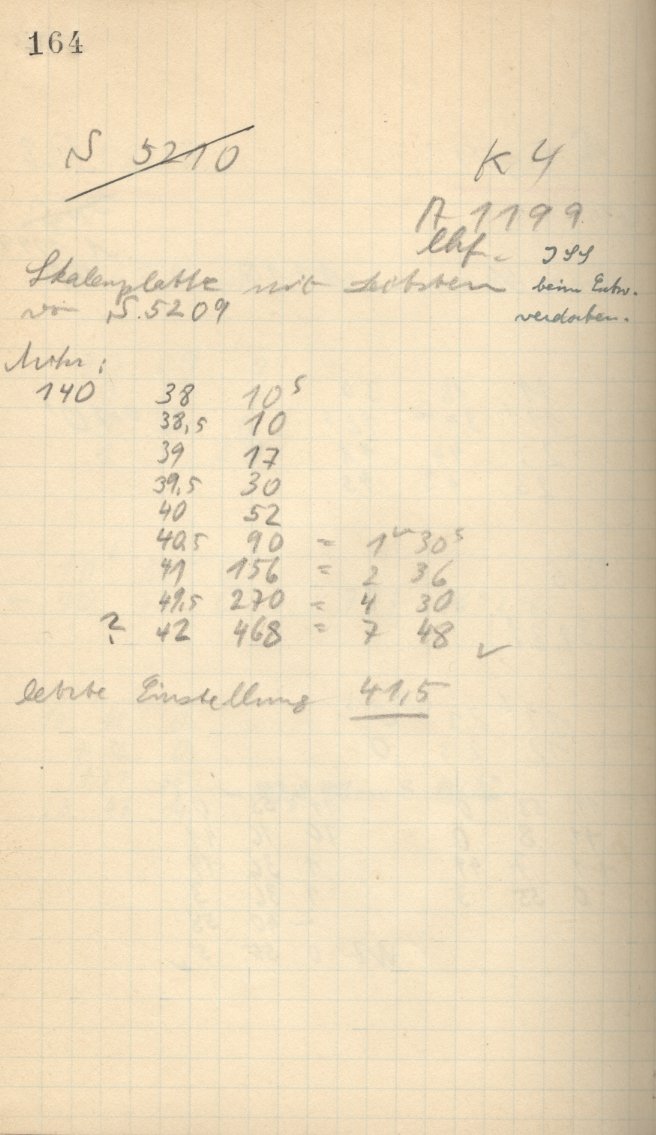 164
S 5210
K 4
A 1199
Ehf.
Skalenplatte mit
von S. 5209
beim Entw.
verdorben.
140 38 10 s
38,5 10
39 17
39,5 30
40 52
40,5 90 = 1 m 30 s
41 156 = 2 36
41,5 270 = 4 30
? 42 468 = 7 48 ✓
letzte Einstellung 41,5